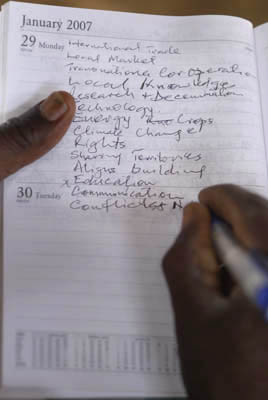 January 2007
29 Monday
International Trade
Local Market
Transnational Co-operation
Local Knowledge
Research + Decemination
Technology
Energy Crops
Climate Change
Rights
Sharing Territories
Aligns building
x Education
30 Tuesday
Communication
Conflicts N